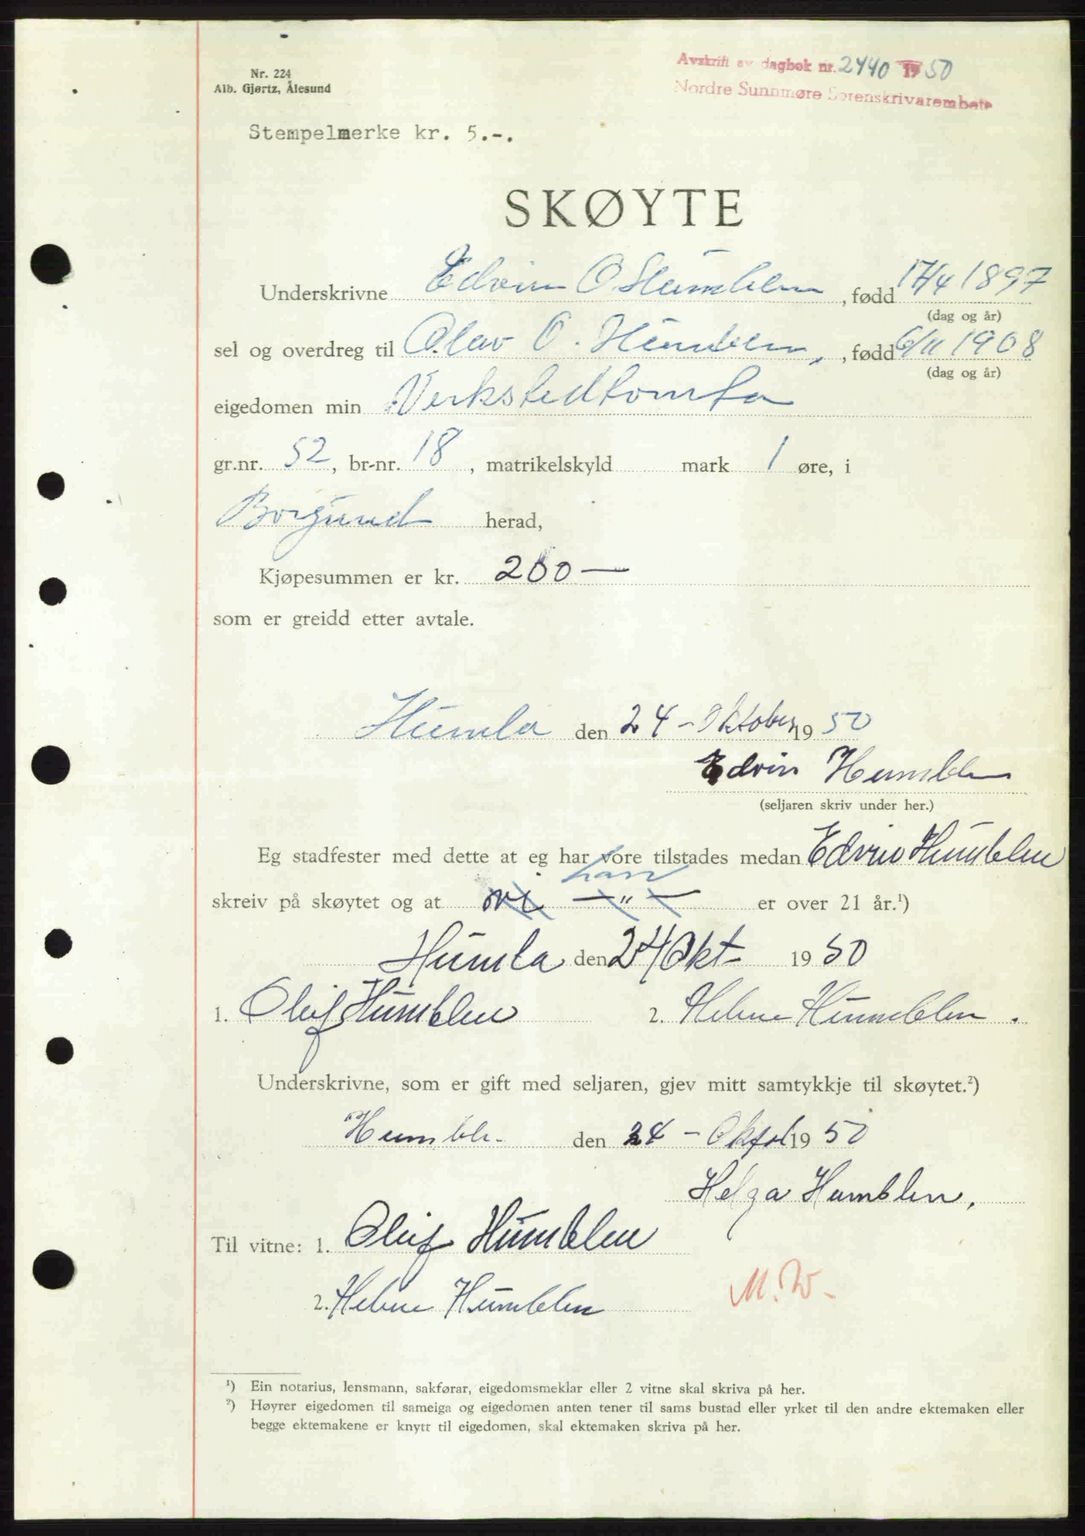 Nr. 224
Alb. Gjørtz, Ålesund
Avskrift av dagbok nr. 2440 1950
Nordre Sunnmøre Sorenskrivarembete
Stempelmerke kr. 5.-.
SKØYTE
Underskrivne Edvin O Humblen, fødd 17/4 1897
(dag og år)
sel og overdreg til Olav O. Humblen, , fødd 6/11 1908
(dag og år)
eigedomen min Verkstedtomta
gr.nr. 52, br-nr. 18, matrikelskyld mark 1 øre, i
Borgund herad,
Kjøpesummen er kr. 200—
som er greidd etter avtale.
Humla den 24 - Oktober 1950
Edvin Humblen
(seljaren skriv under her.)
Eg stadfester med dette at eg har vore tilstades medan Edvin Humblen
han
skreiv på skøytet og at vi — " — er over 21 år.¹)
Humla den 24 Okt- 1950
1. Oluf Humblen 2. Helene Humblen .
Underskrivne, som er gift med seljaren, gjev mitt samtykkje til skøytet.²)
Humbl. den 24 - Oktob 1950
Helga Humblen.
Til vitne: 1. Oluf Humblen
2. Helene Humblen
M.W-
¹) Ein notarius, lensmann, sakførar, eigedomsmeklar eller 2 vitne skal skriva på her.
²) Høyrer eigedomen til sameiga og eigedomen anten tener til sams bustad eller yrket til den andre ektemaken eller
begge ektemakene er knytt til eigedomen, skal ektemaken skriva på her.